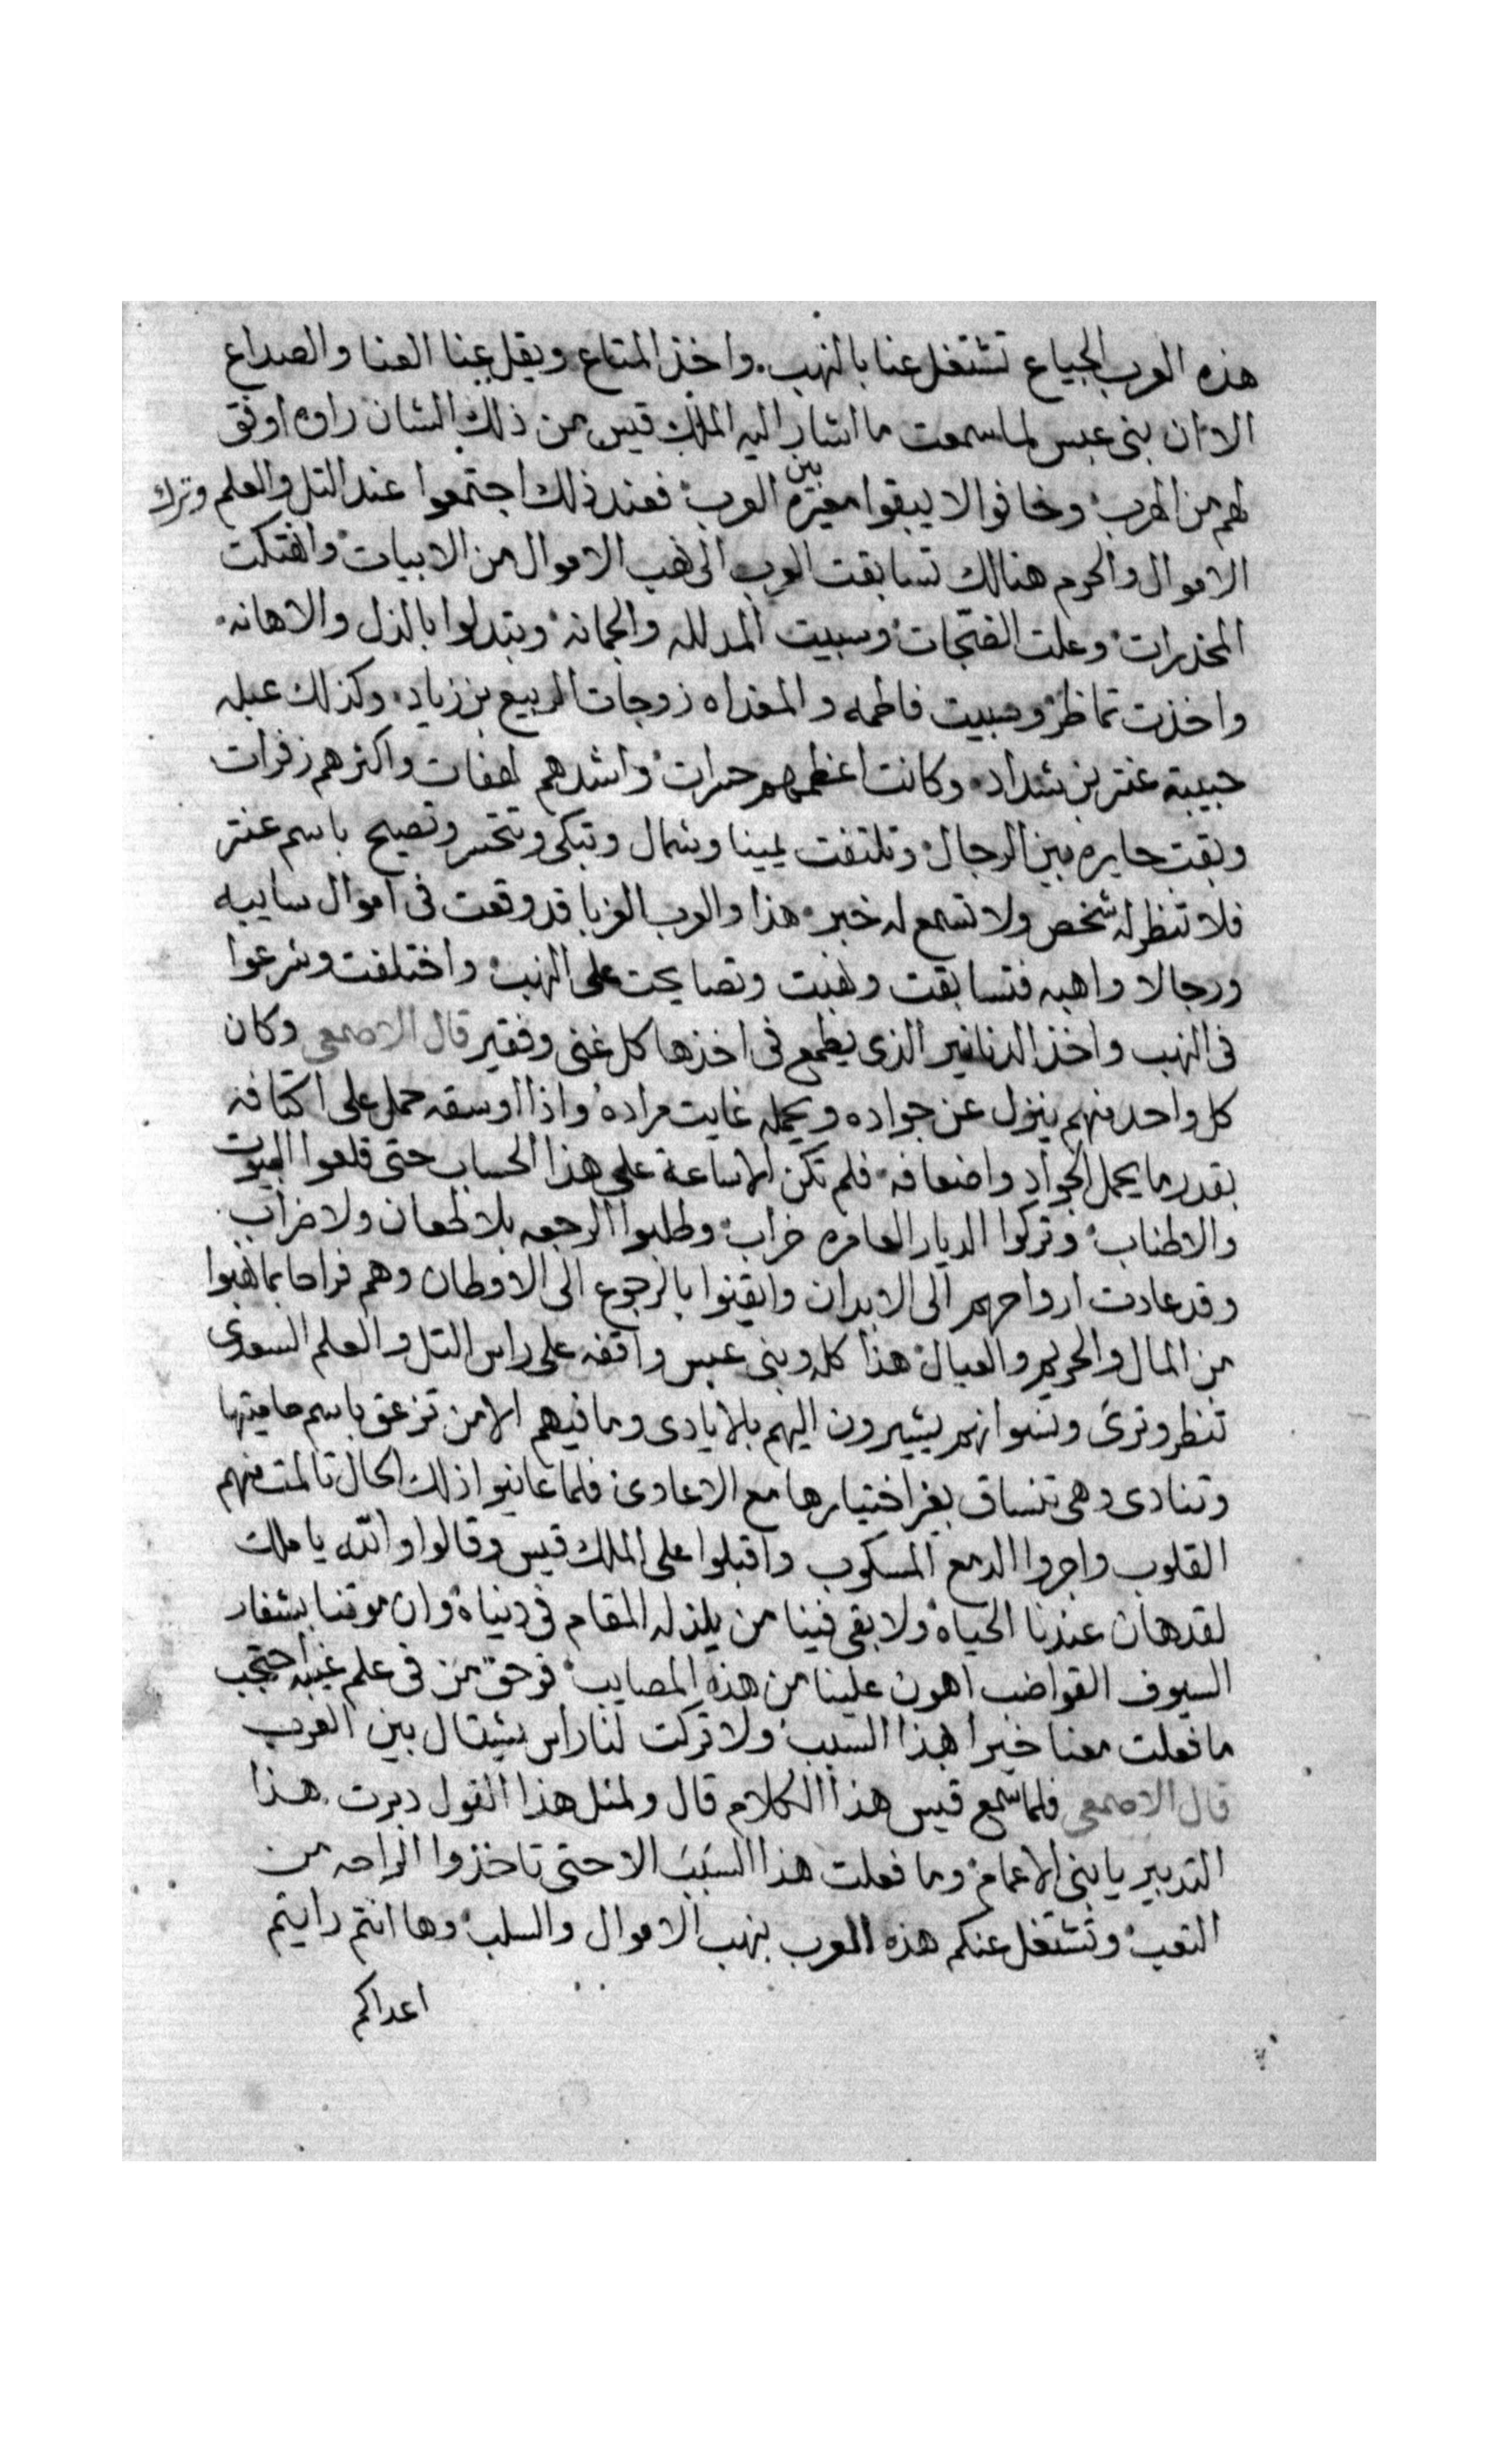 هذه العرب الجياع تشتغل عنا بالنهب واخذ المتاع ويقل عنا العنا والصداع
الا ان بنى عبس لما سمعت ما اشار اليه الملك قيس من ذلك الشان راوه اوفق
لهم من الهرب وخافوا لا يبقوا معيرة بين العرب فعند ذلك اجتمعوا عند التل والعلم وترك
الاموال والحرم هنالك تسابقت العرب الى نهب الاموال من الابيات وانهتكت
المخدرات وعلت الضجات وسبيت المدلله والجمانه وبتدلوا بالذل والاهانه
واخذت تماظر وسبيت فاطمه والمعذاه زوجات الربيع بن زياد وكذلك عبله
حبيبة عنتر بن شداد وكانت اعظمهم حسرات واشدهم لهفات واكثرهم زفرات
وبقت حايره بين الرجال وتلتفت يمينا وشمال وتبكى وتتحسر وتصيح باسم عنتر
فلا تنظر له شخص ولا تسمع له خبر هذا والعرب الغربا قد وقعت فى اموال سايبه
ورجالا واهبه فتسابقت ونهبت وتصايحت على النهب واختلفت وشرعوا
فى النهب واخذ الدنانير الذى يطمع فى اخذها كل غنى وفقير قال الاصمعى وكان
كل واحد منهم ينزل عن جواده ويحمله غايت مراده واذا اوسقه حمل على اكتافه
بقدر ما يحمل الجواد واضعافه فلم تكن الا ساعة على هذا الحساب حتى قلعوا البيوت
والاطناب وتركوا الديار العامره خراب وطلبوا الرجعه بلا طعان ولا ضراب
وقد عادت ارواحهم الى الابدان وايقنوا بالرجوع الى الاوطان وهم فراحا بما نهبوا
من المال والحريم والعيال هذا كله وبنى عبس واقفه على راس التل والعلم السعدى
تنظر وترى ونسوانهم يشيرون اليهم بلايادى وما فيهم الا من تزعق باسم حاميتها
وتنادى وهى تنساق بغر اختيارها مع الاعادى فلما عاينوا ذلك الحال تالمت منهم
القلوب واجروا الدمع المسكوب واقبلوا على الملك قيس وقالوا والله يا ملك
لقد هان عندنا الحياة ولا بقى فينا من يلذ له المقام فى دنياه وان موتنا بشفار
السيوف القواضب اهون علينا من هذه المصايب فوحق من فى علم غيبه احتجب
ما فعلت معنا خيرا بهذا السبب ولا تركت لنا راس يشتال بين العرب
قال الاصمعى فلما سمع قيس هذا الكلام قال ولمثل هذا القول دبرت هذا
التدبير يا بنى الاعمام وما فعلت هذا السبب الا حتى تاخذوا الراحه من
التعب وتشتغل عنكم هذه العرب بنهب الاموال والسلب وها انتم رايتم
اعداكم